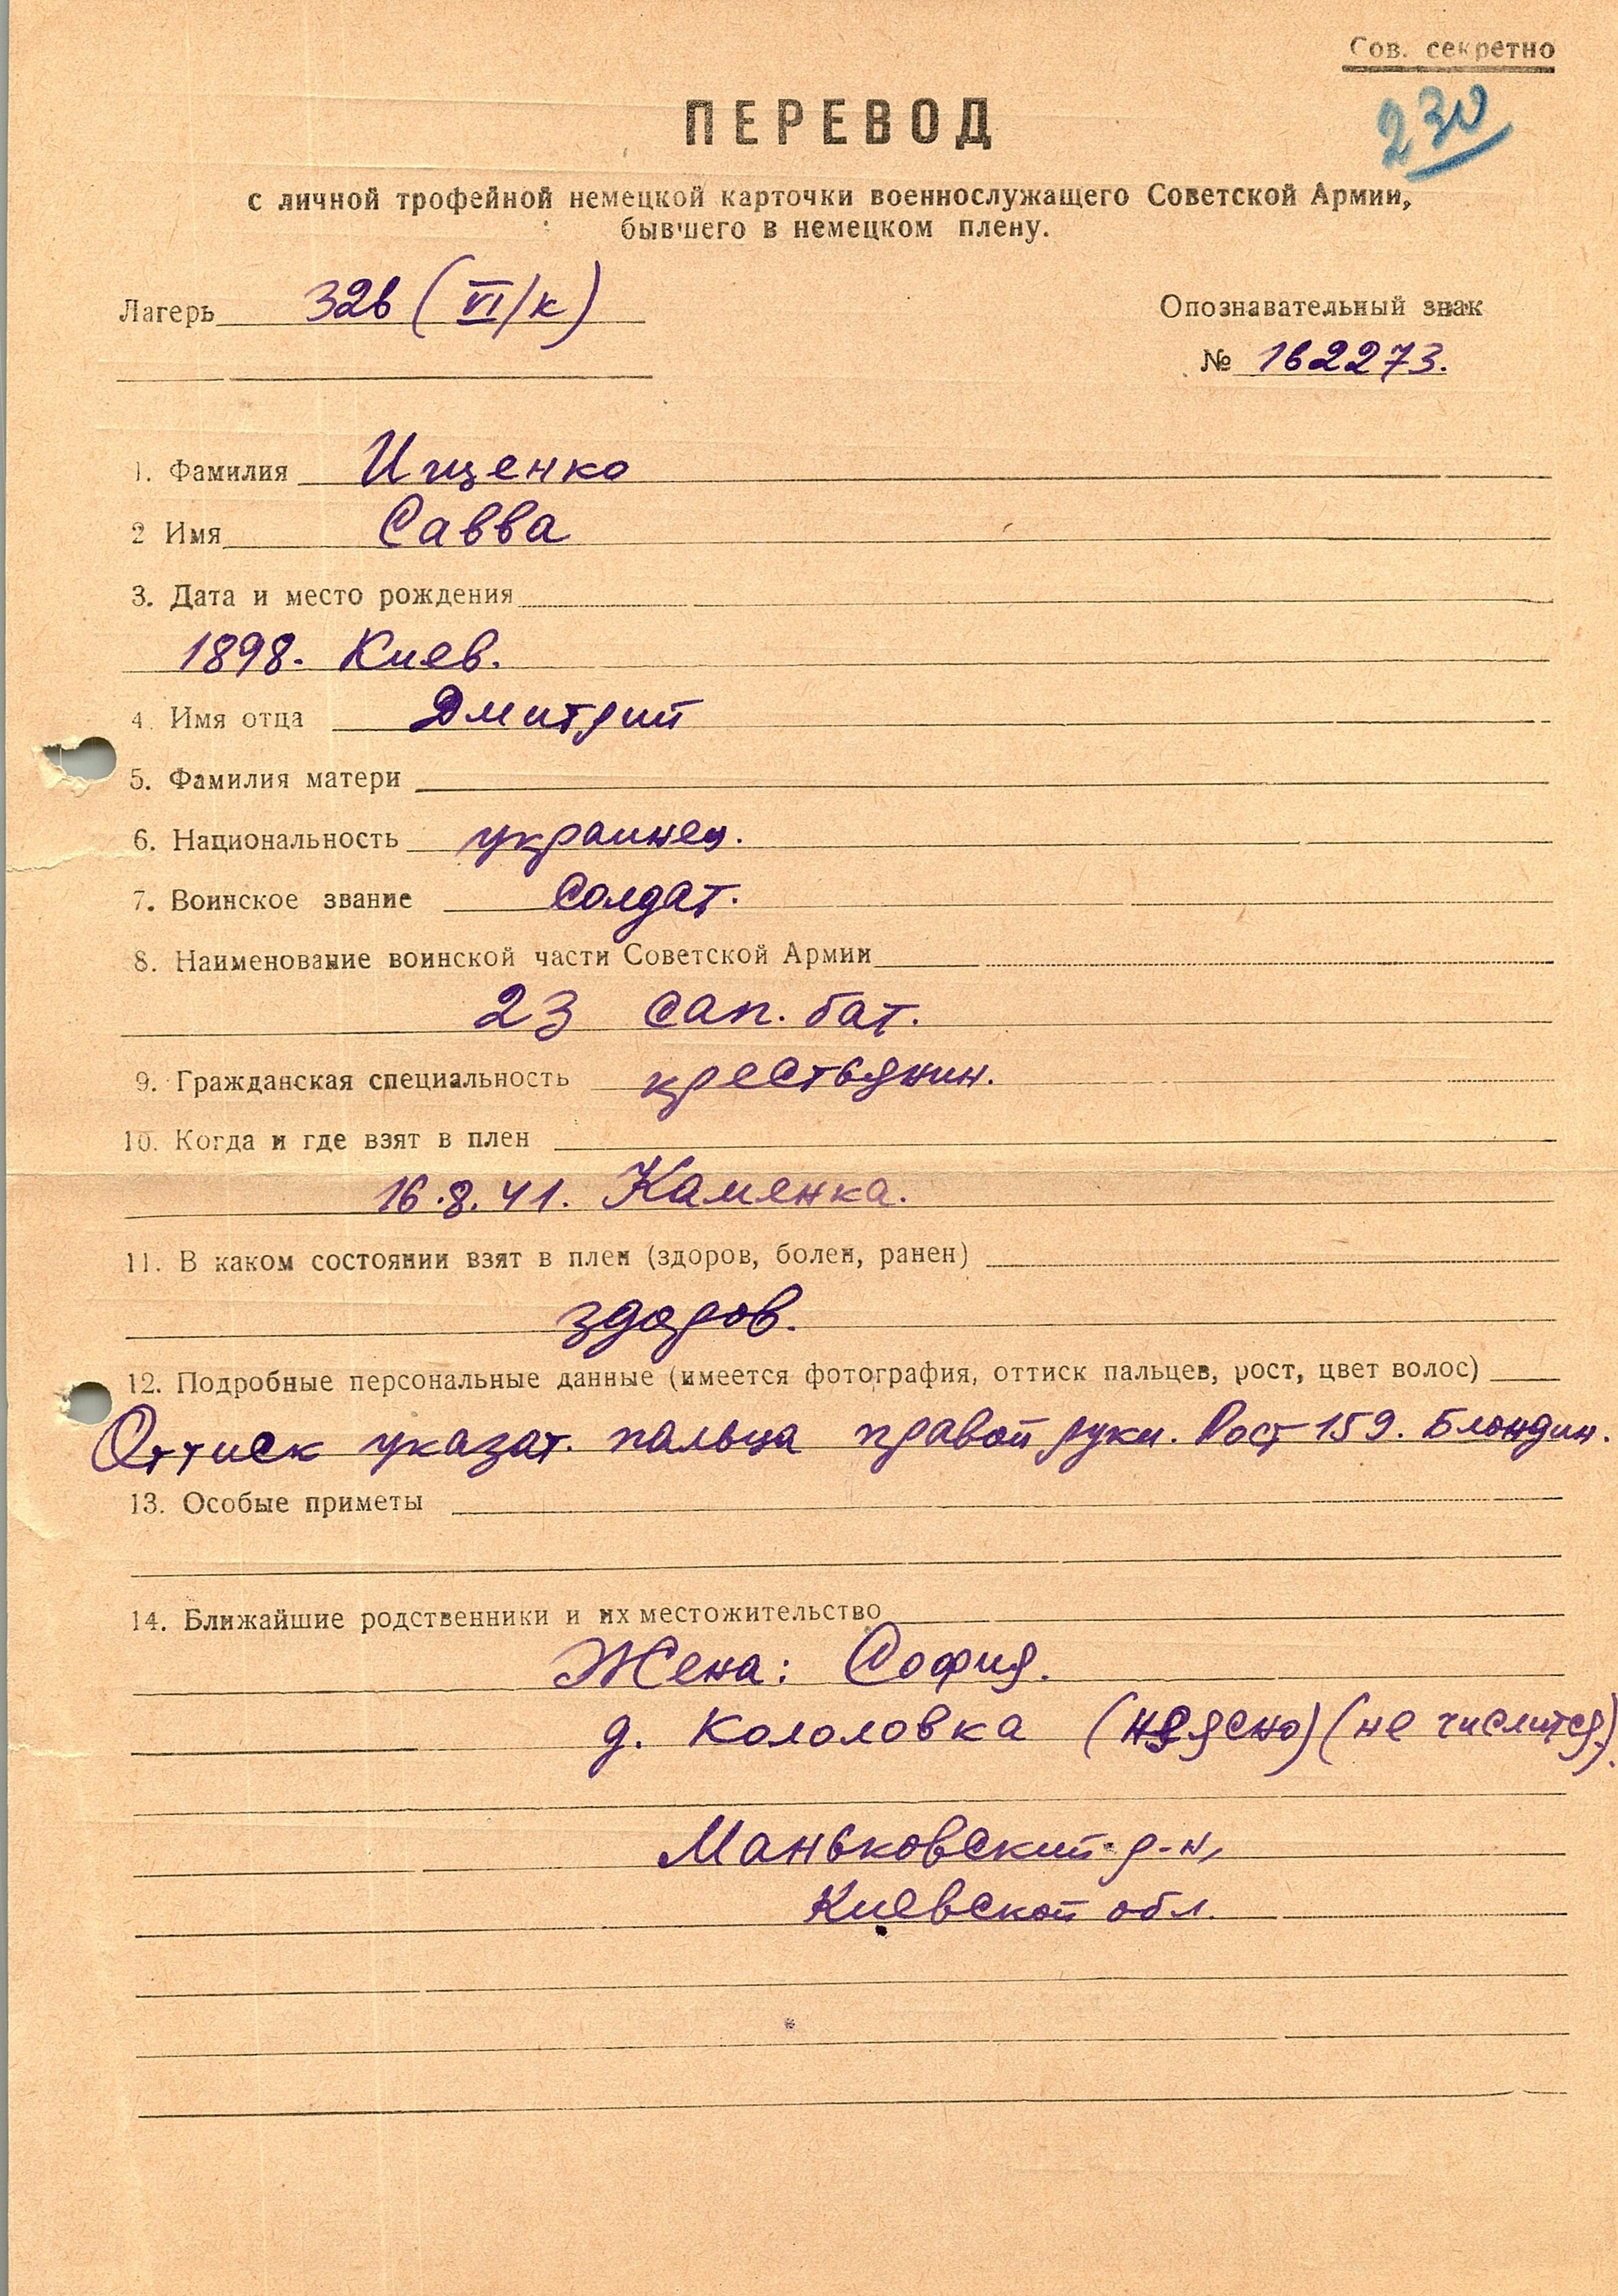 Сов. секретно
230
ПЕРЕВОД
с личной трофейной немецкой карточки военнослужащего Советской Армии,
бывшего в немецком плену.
Лагерь 326 (VI/к)
Опознавательный знак
№ 162273.
1. Фамилия Ищенко
2 Имя Савва
3. Дата и место рождения
1898. Киев.
4. Имя отца Дмитрий
5. Фамилия матери
6. Национальность украинец.
7. Воинское звание солдат.
8. Наименование воинской части Советской Армии
23 сап. бат.
9. Гражданская специальность крестьянин.
10. Когда и где взят в плен
16.8.41. Каменка.
11. В каком состоянии взят в плен (здоров, болен, ранен)
здоров.
12. Подробные персональные данные (имеется фотография, оттиск пальцев, рост, цвет волос)
Оттиск указат. пальца правой руки. Рост 159. Блондин.
13. Особые приметы
14. Ближайшие родственники и их местожительство
Жена: София.
д. Кололовка (неясно) (не числится).
Маньковский р-н,
Киевской обл.